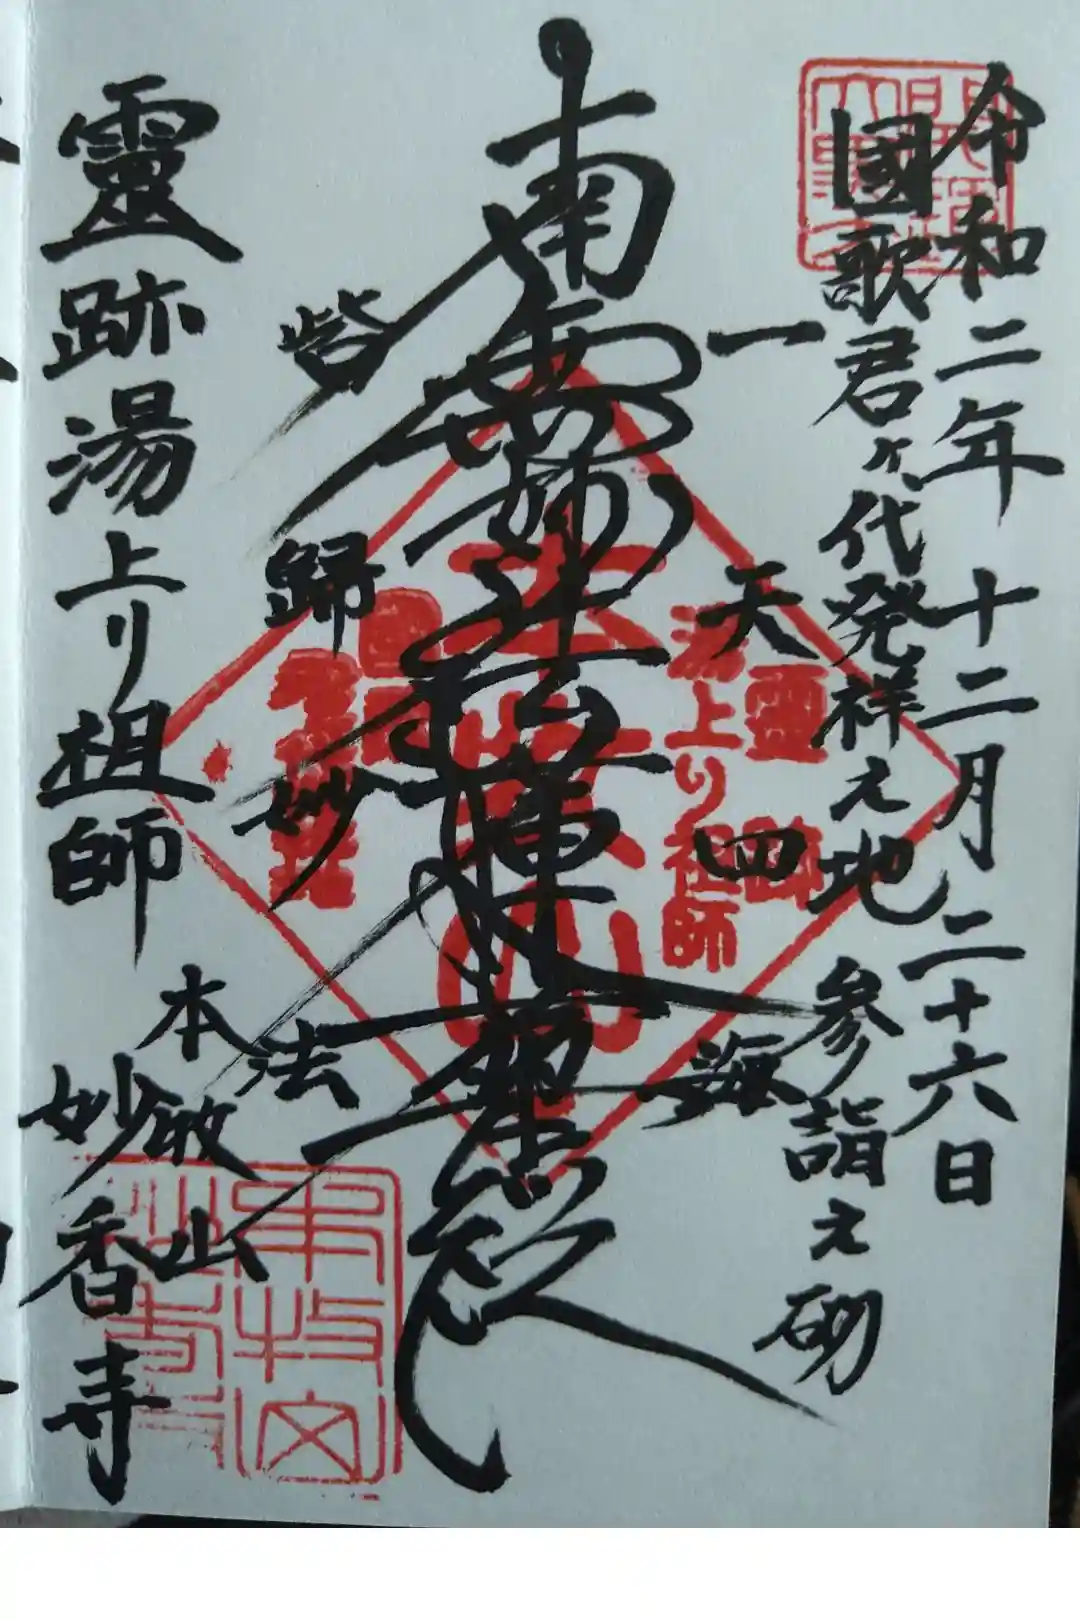 令和二年十二月二十六日
國歌君ヶ代発祥え地 参詣え砌
一天四海
南無妙法蓮華経
皆歸妙法
靈跡湯上り祖師
本牧山
妙香寺
靈跡
湯上り祖師